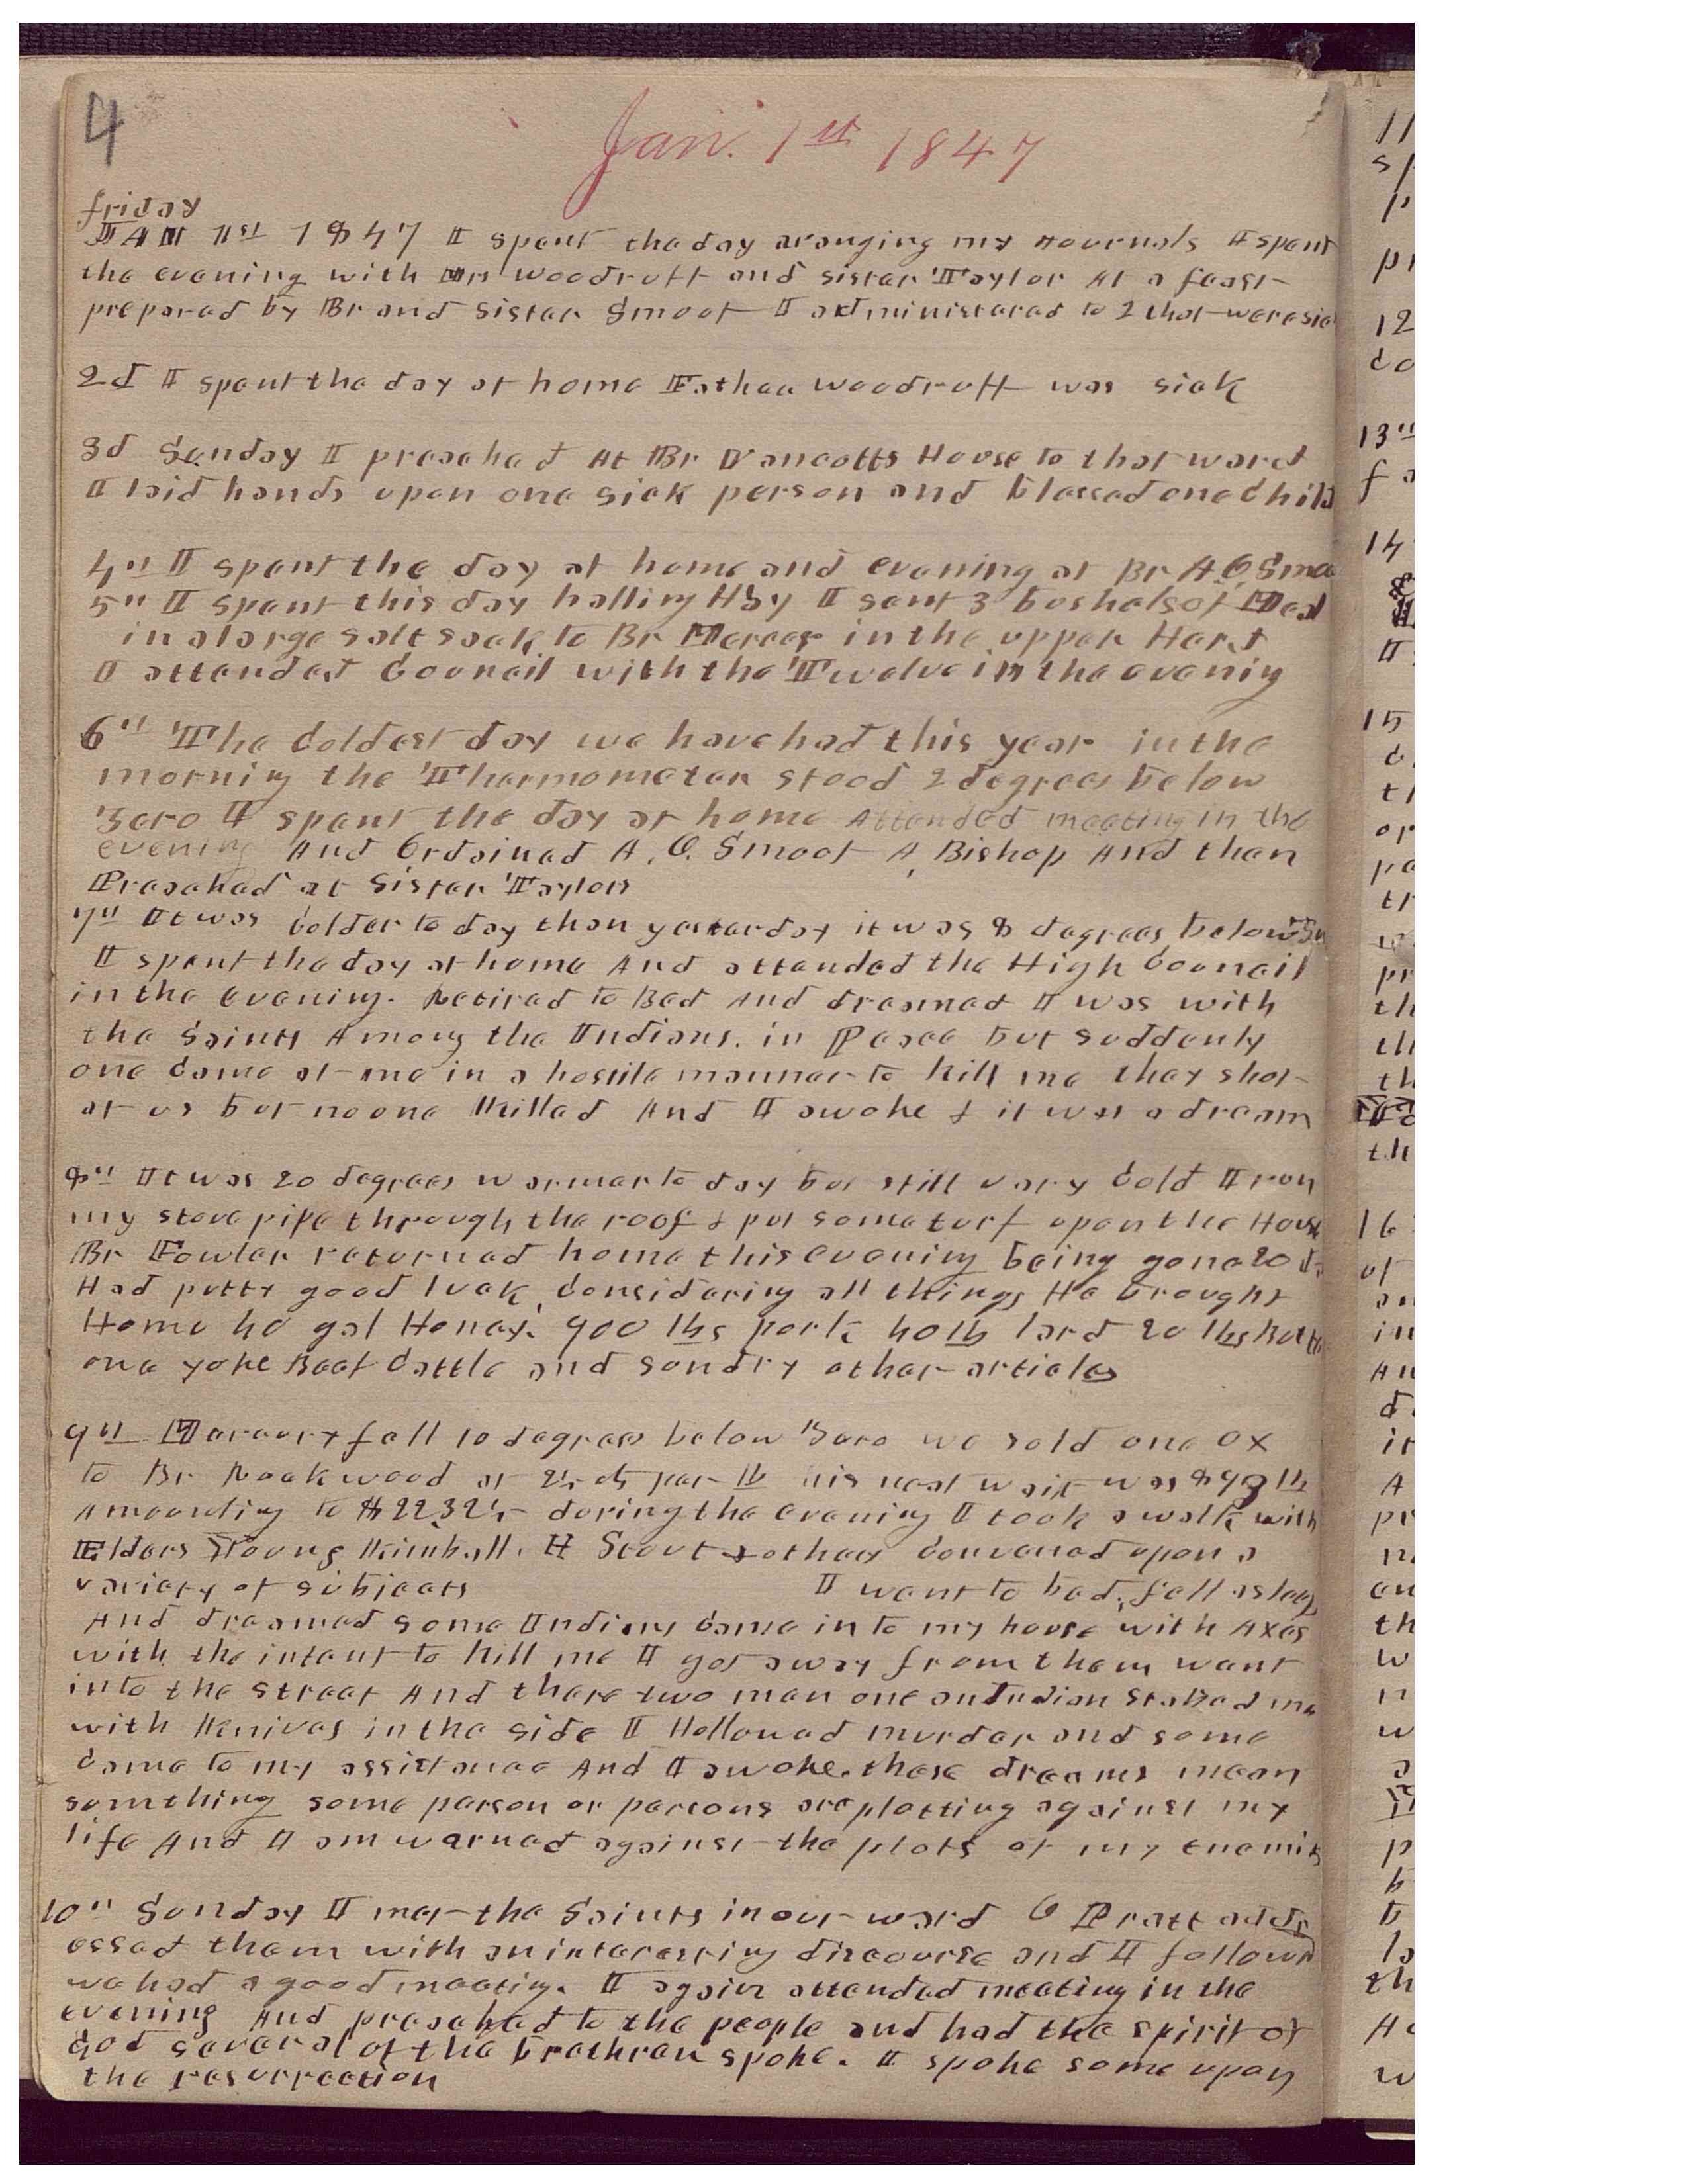 4
Jan. 1st 1847
friday
JAN 1st 1847 I spent the day aranging my Journals I spent
the evening with Mrs Woodruff and sister Taylor At a feast
prepared by Br and Sister Smoot I administered to 2 that were sic
2d I spent the day at home Father Woodruff was sick
3d Sunday I preached At Br Vancotts House to that ward
I laid hands upon one sick person and blessed one Child
4th I spent the day at home and evening at Br A O Smoo
5th I spent this day halling Hay I sent 3 bushels of Meal
in a large salt sack to Br Mercer in the upper Herd
I attended Council with the Twelve in the evenig
6th The Coldest day we have had this year in the
morning the Thermometer stood 2 degrees below
Zero I spent the day at home Attended meeting in the
evening And Ordained A. O. Smoot A Bishop And then
Preached at Sister Taylors
7th It was Colder to day than yesterday it was 8 degrees below
I spent the day at home And attended the High Council
in the evening. Retired to Bed And dreamed I was with
the Saints Among the Indians. in Peace but suddenly
one Came at me in a hostile manner to kill me they shot
at us but no one Killed And I awoke & it was a dream
8th It was 20 degrees warmer to day but still very Cold I run
my stove pipe through the roof & put some turf upon the House
Br Fowler returned home this evening being gone 20 d
Had putty good luck Considering all things He brought
Home 40 gal Honey. 900 lbs pork 40 lb lard 20 lbs Butt
one yoke Beef Cattle and sundry other articles
9th Mercury fell 10 degrees below Zero we sold one ox
to Br Rockwood at 2½ cts per lb his neat wait was 893 lb
Amounting to $22.32½ during the evening I took a walk with
Elders Young Kimball. H Stout & others Conversed upon a
variety of subjects I went to bed, fell asleep
And dreamed some Indians Came into my house with Axes
with the intent to kill me I got away from them went
into the street And there two men one an Indian Stabed me
with Knives in the side I Hollowed murder and some
Came to my assistance And I awoke. these dreams mean
somthing some person or persons are plotting against my
life And I am warned against the plots of my Enemies
10th Sunday I met the Saints in our ward O Pratt addr
essed them with an interesting discourse and I followd
we had a good meetig. I again attended meeting in the
evening And preached to the people and had the spirit of
God several of the brethren spoke. I spoke some upon
the resurrection